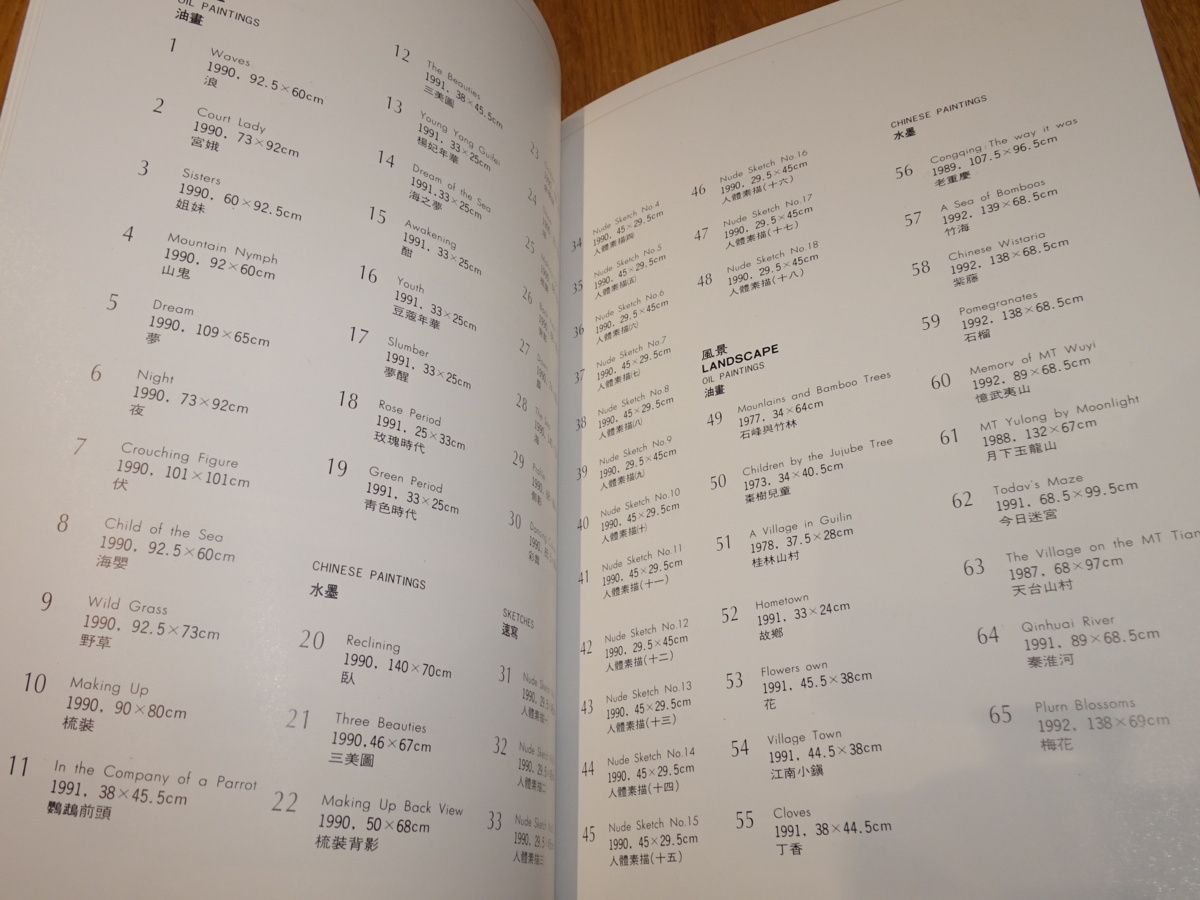 OIL PAINTINGS
油畫
1
Waves
1990．92.5×60cm
浪
2
Court Lady
1990．73×92cm
宮娥
3
Sisters
1990．60×92.5cm
姐妹
4
Mountain Nymph
1990．92×60cm
山鬼
5
Dream
1990．109×65cm
夢
6
Night
1990．73×92cm
夜
7
Crouching Figure
1990．101×101cm
伏
8
Child of the Sea
1990．92.5×60cm
海嬰
9
Wild Grass
1990．92.5×73cm
野草
10
Making Up
1990．90×80cm
梳裝
11
In the Company of a Parrot
1991．38×45.5cm
鸚鵡前頭
12
The Beauties
1991．38×45.5cm
三美圖
13
Young Yang Guifei
1991．33×25cm
楊妃年華
14
Dream of the Sea
1991.33×25cm
海之夢
15
Awakening
1991．33×25cm
酣
16
Youth
1991．33×25cm
豆蔻年華
17
Slumber
1991．33×25cm
夢醒
18
Rose Period
1991．25×33cm
玫瑰時代
19
Green Period
1991．33×25cm
青色時代
CHINESE PAINTINGS
水墨
20
Reclining
1990．140×70cm
臥
21
Three Beauties
1990.46×67cm
三美圖
22
Making Up Back View
1990．50×68cm
梳裝背影
23
24
25
26
27
28
29
30
SKETCHES
速寫
31
Nude Sk
1990．29.5
人體素描一
32
Nude Sk
1990．29.5
人體素描二
33
Nude Sk
1990．29.5
人體素描三
34
Nude Sketch No.4
1990．45×29.5cm
人體素描四
35
Nude Sketch No.5
1990．45×29.5cm
人體素描(五)
36
Nude Sketch No.6
1990．29.5×45cm
人體素描(六)
37
Nude Sketch No.7
1990．45×29.5cm
人體素描(七)
38
Nude Sketch No.8
1990．45×29.5cm
人體素描(八)
39
Nude Sketch No.9
1990．29.5×45cm
人體素描(九)
40
Nude Sketch No.10
1990．45×29.5cm
人體素描(十)
41
Nude Sketch No.11
1990．45×29.5cm
人體素描(十一)
42
Nude Sketch No.12
1990．29.5×45cm
人體素描(十二)
43
Nude Sketch No.13
1990．45×29.5cm
人體素描(十三)
44
Nude Sketch No.14
1990．45×29.5cm
人體素描(十四)
45
Nude Sketch No.15
1990．45×29.5cm
人體素描(十五)
46
Nude Sketch No.16
1990．29.5×45cm
人體素描(十六)
47
Nude Sketch No.17
1990．29.5×45cm
人體素描(十七)
48
Nude Sketch No.18
1990．29.5×45cm
人體素描(十八)
風景
LANDSCAPE
OIL PAINTINGS
油畫
49
Mounlains and Bamboo Trees
1977．34×64cm
石峰與竹林
50
Children by the Jujube Tree
1973．34×40.5cm
棗樹兒童
51
A Village in Guilin
1978．37.5×28cm
桂林山村
52
Hometown
1991．33×24cm
故鄉
53
Flowers own
1991．45.5×38cm
花
54
Village Town
1991．44.5×38cm
江南小鎭
55
Cloves
1991．38×44.5cm
丁香
CHINESE PAINTINGS
水墨
56
Congqing:The way it was
1989．107.5×96.5cm
老重慶
57
A Sea of Bomboos
1992．139×68.5cm
竹海
58
Chinese Wistaria
1992．138×68.5cm
紫藤
59
Pomegranates
1992．138×68.5cm
石榴
60
Memorv of MT Wuyi
1992．89×68.5cm
憶武夷山
61
MT Yulong by Moonlight
1988．132×67cm
月下玉龍山
62
Todav's Maze
1991．68.5×99.5cm
今日迷宮
63
The Village on the MT Tian
1987．68×97cm
天台山村
64
Qinhuai River
1991．89×68.5cm
秦淮河
65
Plurn Blossoms
1992．138×69cm
梅花